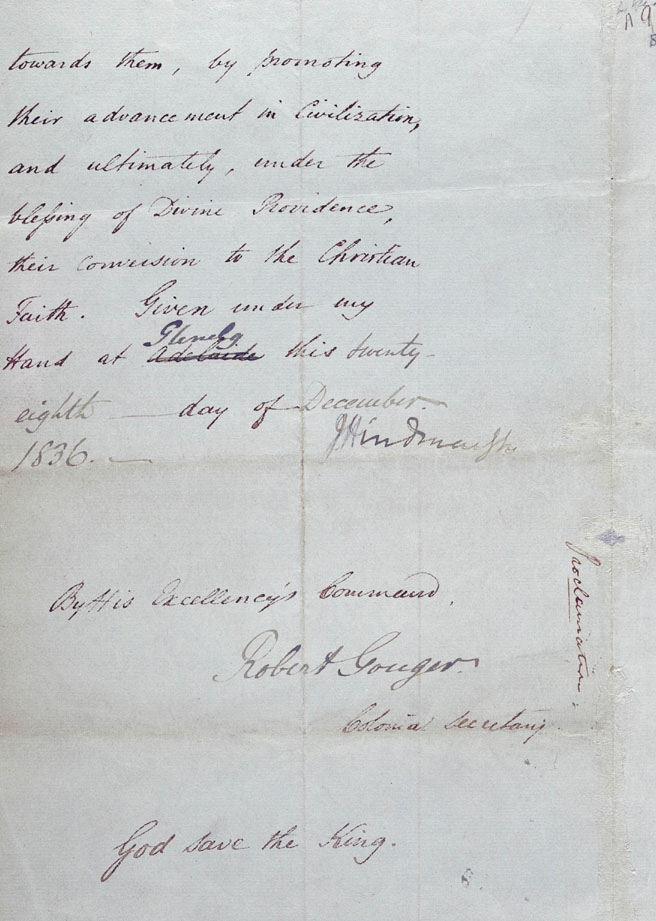 towards them, by promoting
their advancement in Civilization,
and ultimately, under the
blessing of Divine Providence,
their conversion to the Christian
Faith. Given under my
Glenelg
Hand at Adelaide this twenty-
eighth — day of December
1836. —
JHindmarsh
By His Excellency's Command,
Robert Gouger.
Colonial Secretary.
God save the King.
Proclamation.